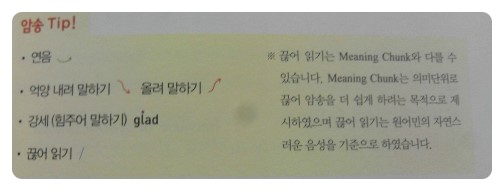 암송 Tip!
· 연음
· 억양 내려 말하기 올려 말하기
· 강세(힘주어 말하기) glad
· 끊어 읽기 /
※ 끊어 읽기는 Meaning Chunk와 다를 수
있습니다. Meaning Chunk는 의미단위로
끊어 암송을 더 쉽게 하려는 목적으로 제
시하였으며 끊어 읽기는 원어민의 자연스
러운 음성을 기준으로 하였습니다.